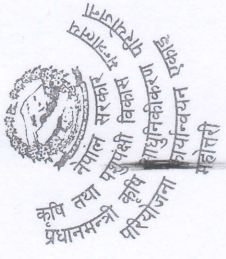 नेपाल सरकार
कृषि तथा पशुपक्षी विकास मन्त्रालय
प्रधानमन्त्री कृषि आधुनिकीकरण परियोजना
परियोजना कार्यान्वयन एकाई
महोत्तरी